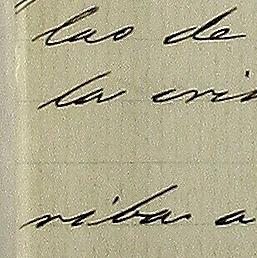 las de
la cris
ribas a